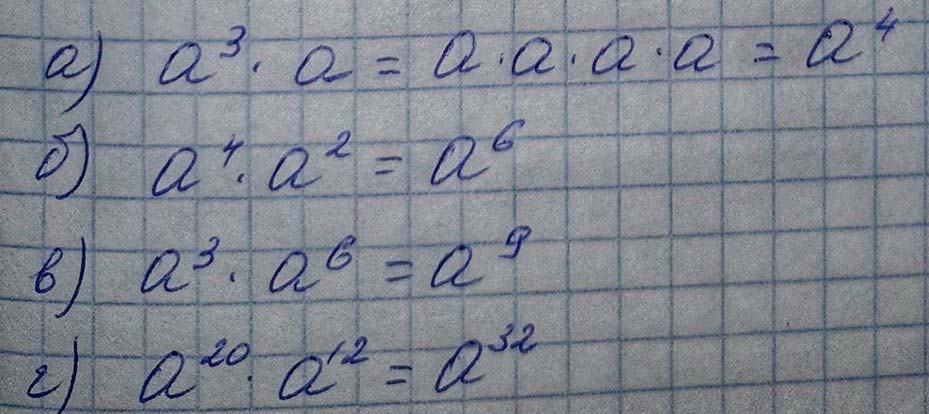 а) a³ · a = a · a · a · a = a⁴
б) a⁴ · a² = a⁶
в) a³ · a⁶ = a⁹
г) a²⁰ · a¹² = a³²